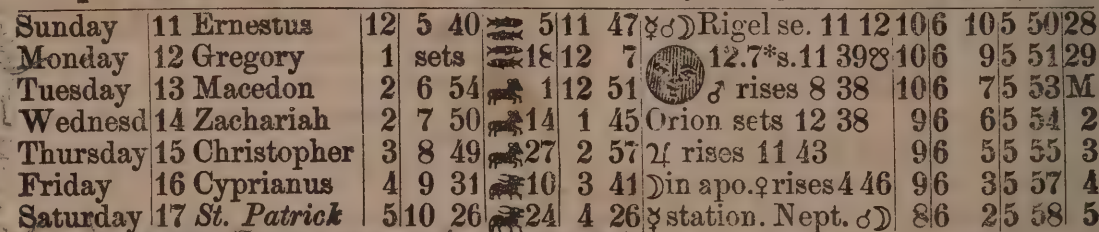 Sunday 11 Ernestus 12 5 40 5 11 47 ☿☌☽Rigel se. 11 12 10 6 10 5 50 28
Monday 12 Gregory 1 sets 18 12 7 12.7*s.11 39 ☋ 10 6 9 5 51 29
Tuesday 13 Macedon 2 6 54 1 12 51 ♂ rises 8 38 10 6 7 5 53 M
Wednesd 14 Zachariah 2 7 50 14 1 45 Orion sets 12 38 9 6 6 5 54 2
Thursday 15 Christopher 3 8 49 27 2 57 ♃ rises 11 43 9 6 5 5 55 3
Friday 16 Cyprianus 4 9 31 10 3 41 ☽in apo.♀rises 4 46 9 6 3 5 57 4
Saturday 17 St. Patrick 5 10 26 24 4 26 ☿ station. Nept. ☌☽ 8 6 2 5 58 5